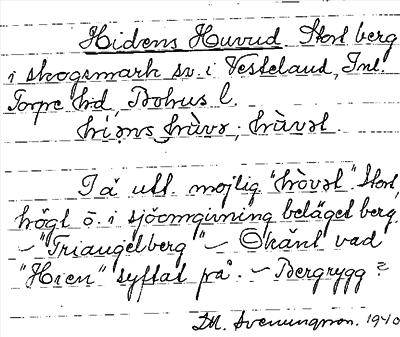 Hidens Huvud Stort berg
i skogsmark sv. i Vesteland, Inl.
Torpe hd, Bohus l.
På utt. möjlig "hòvəl". Stort,
högt ö. i sjöomgivning beläget berg.
– "Triangelberg" – Okänt vad
"Hien" syftat på. – Bergrygg?
Svenungsson. 1940